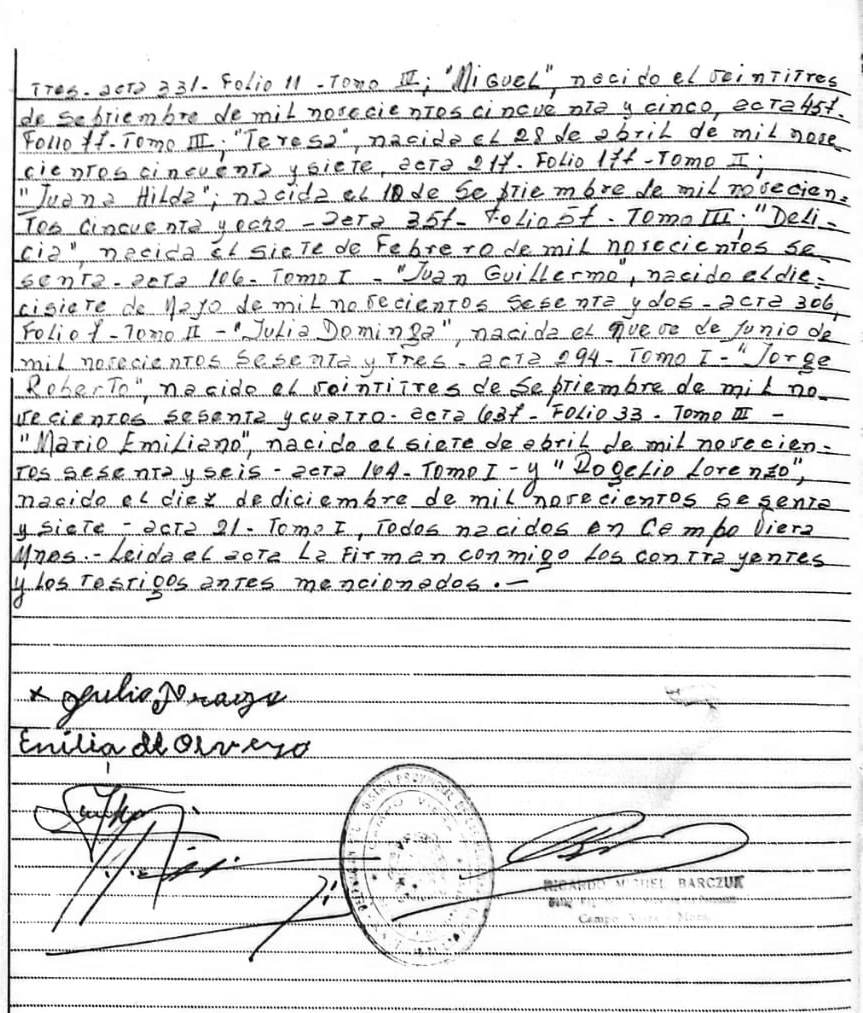 Tres- acta 331- Folio 11 -Tomo III; "Miguel", nacido el veintitres
de Septiembre de mil novecientos cincuenta y cinco, acta 457-
Folio 77-Tomo III; "Teresa", nacida el 28 de abril de mil nove_
cientos cincuenta y siete, acta 217- Folio 177 -Tomo II;
"Juana Hilda"; nacida el 10 de Septiembre de mil novecien=
Tos cincuenta y ocho - acta 357- Folio 57 - Tomo III; "Deli-
cia", nacida el siete de Febrero de mil novecientos se_
senta- acta 106- Tomo I - "Juan Guillermo", nacido el die=
cisiete de Mayo de mil novecientos sesenta y dos - acta 306,
Folio 7 -Tomo II - "Julia Dominga", nacida el nueve de junio de
mil novecientos sesenta y Tres - acta 294- Tomo I - "Jorge
Roberto", nacido el veintitres de septiembre de mil no_
vecientos sesenta y cuatro- acta 637- Folio 33 - Tomo III -
"Mario Emiliano", nacido el siete de abril de mil novecien-
tos sesenta y seis - acta 164- Tomo I - y "Rogelio Lorenzo",
nacido el diez de diciembre de mil novecientos sesenta
y siete - acta 21- Tomo I, Todos nacidos en Campo Viera
Mnes.- Leida el acta la firman conmigo los contrayentes
y los testigos antes mencionados.-
x Julio
Emilia de
RICARDO MIGUEL BARCZUK
Campo Viera Mnes.